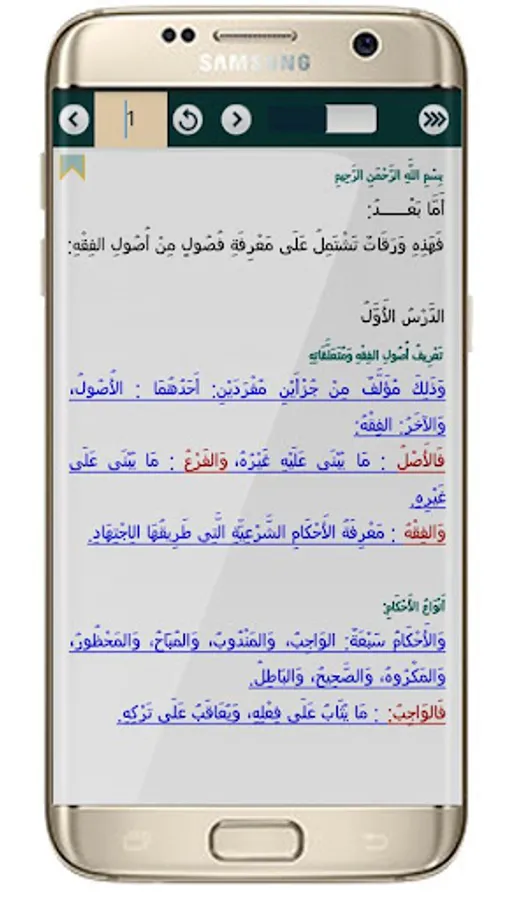 SAMSUNG
1
بِسْمِ اللَّهِ الرَّحْمَنِ الرَّحِيمِ
أَمَّا بَعْــــدُ:
فَهَذِهِ وَرَقَاتٌ تَشْتَمِلُ عَلَى مَعْرِفَةِ فُصُولٍ مِنْ أُصُولِ الفِقْهِ:
الدَّرْسُ الأَوَّلُ
تَعْرِيفُ أُصُولِ الفِقْهِ وَمُتَعَلَّقَاتِهِ
وَذَلِكَ مُؤَلَّفٌ مِنْ جُزْأَيْنِ مُفْرَدَيْنِ: أَحَدُهُمَا : الأُصُولُ،
وَالآخَرُ: الفِقْهُ:
فَالأَصْلُ : مَا يَنْبَنِي عَلَيْهِ غَيْرُهُ، وَالفَرْعُ : مَا يُبْنَى عَلَى
غَيْرِهِ.
وَالفِقْهُ : مَعْرِفَةُ الأَحْكَامِ الشَّرْعِيَّةِ الَّتِي طَرِيقُهَا الِاجْتِهَادِ.
أَنْوَاعُ الأَحْكَامِ:
وَالأَحْكَامُ سَبْعَةٌ: الوَاجِبُ، وَالمَنْدُوبُ، وَالمُبَاحُ، وَالمَحْظُورُ،
وَالمَكْرُوهُ، وَالصَّحِيحُ، وَالبَاطِلُ.
فَالوَاجِبُ: : مَا يُثَابُ عَلَى فِعْلِهِ، وَيُعَاقَبُ عَلَى تَرْكِهِ.